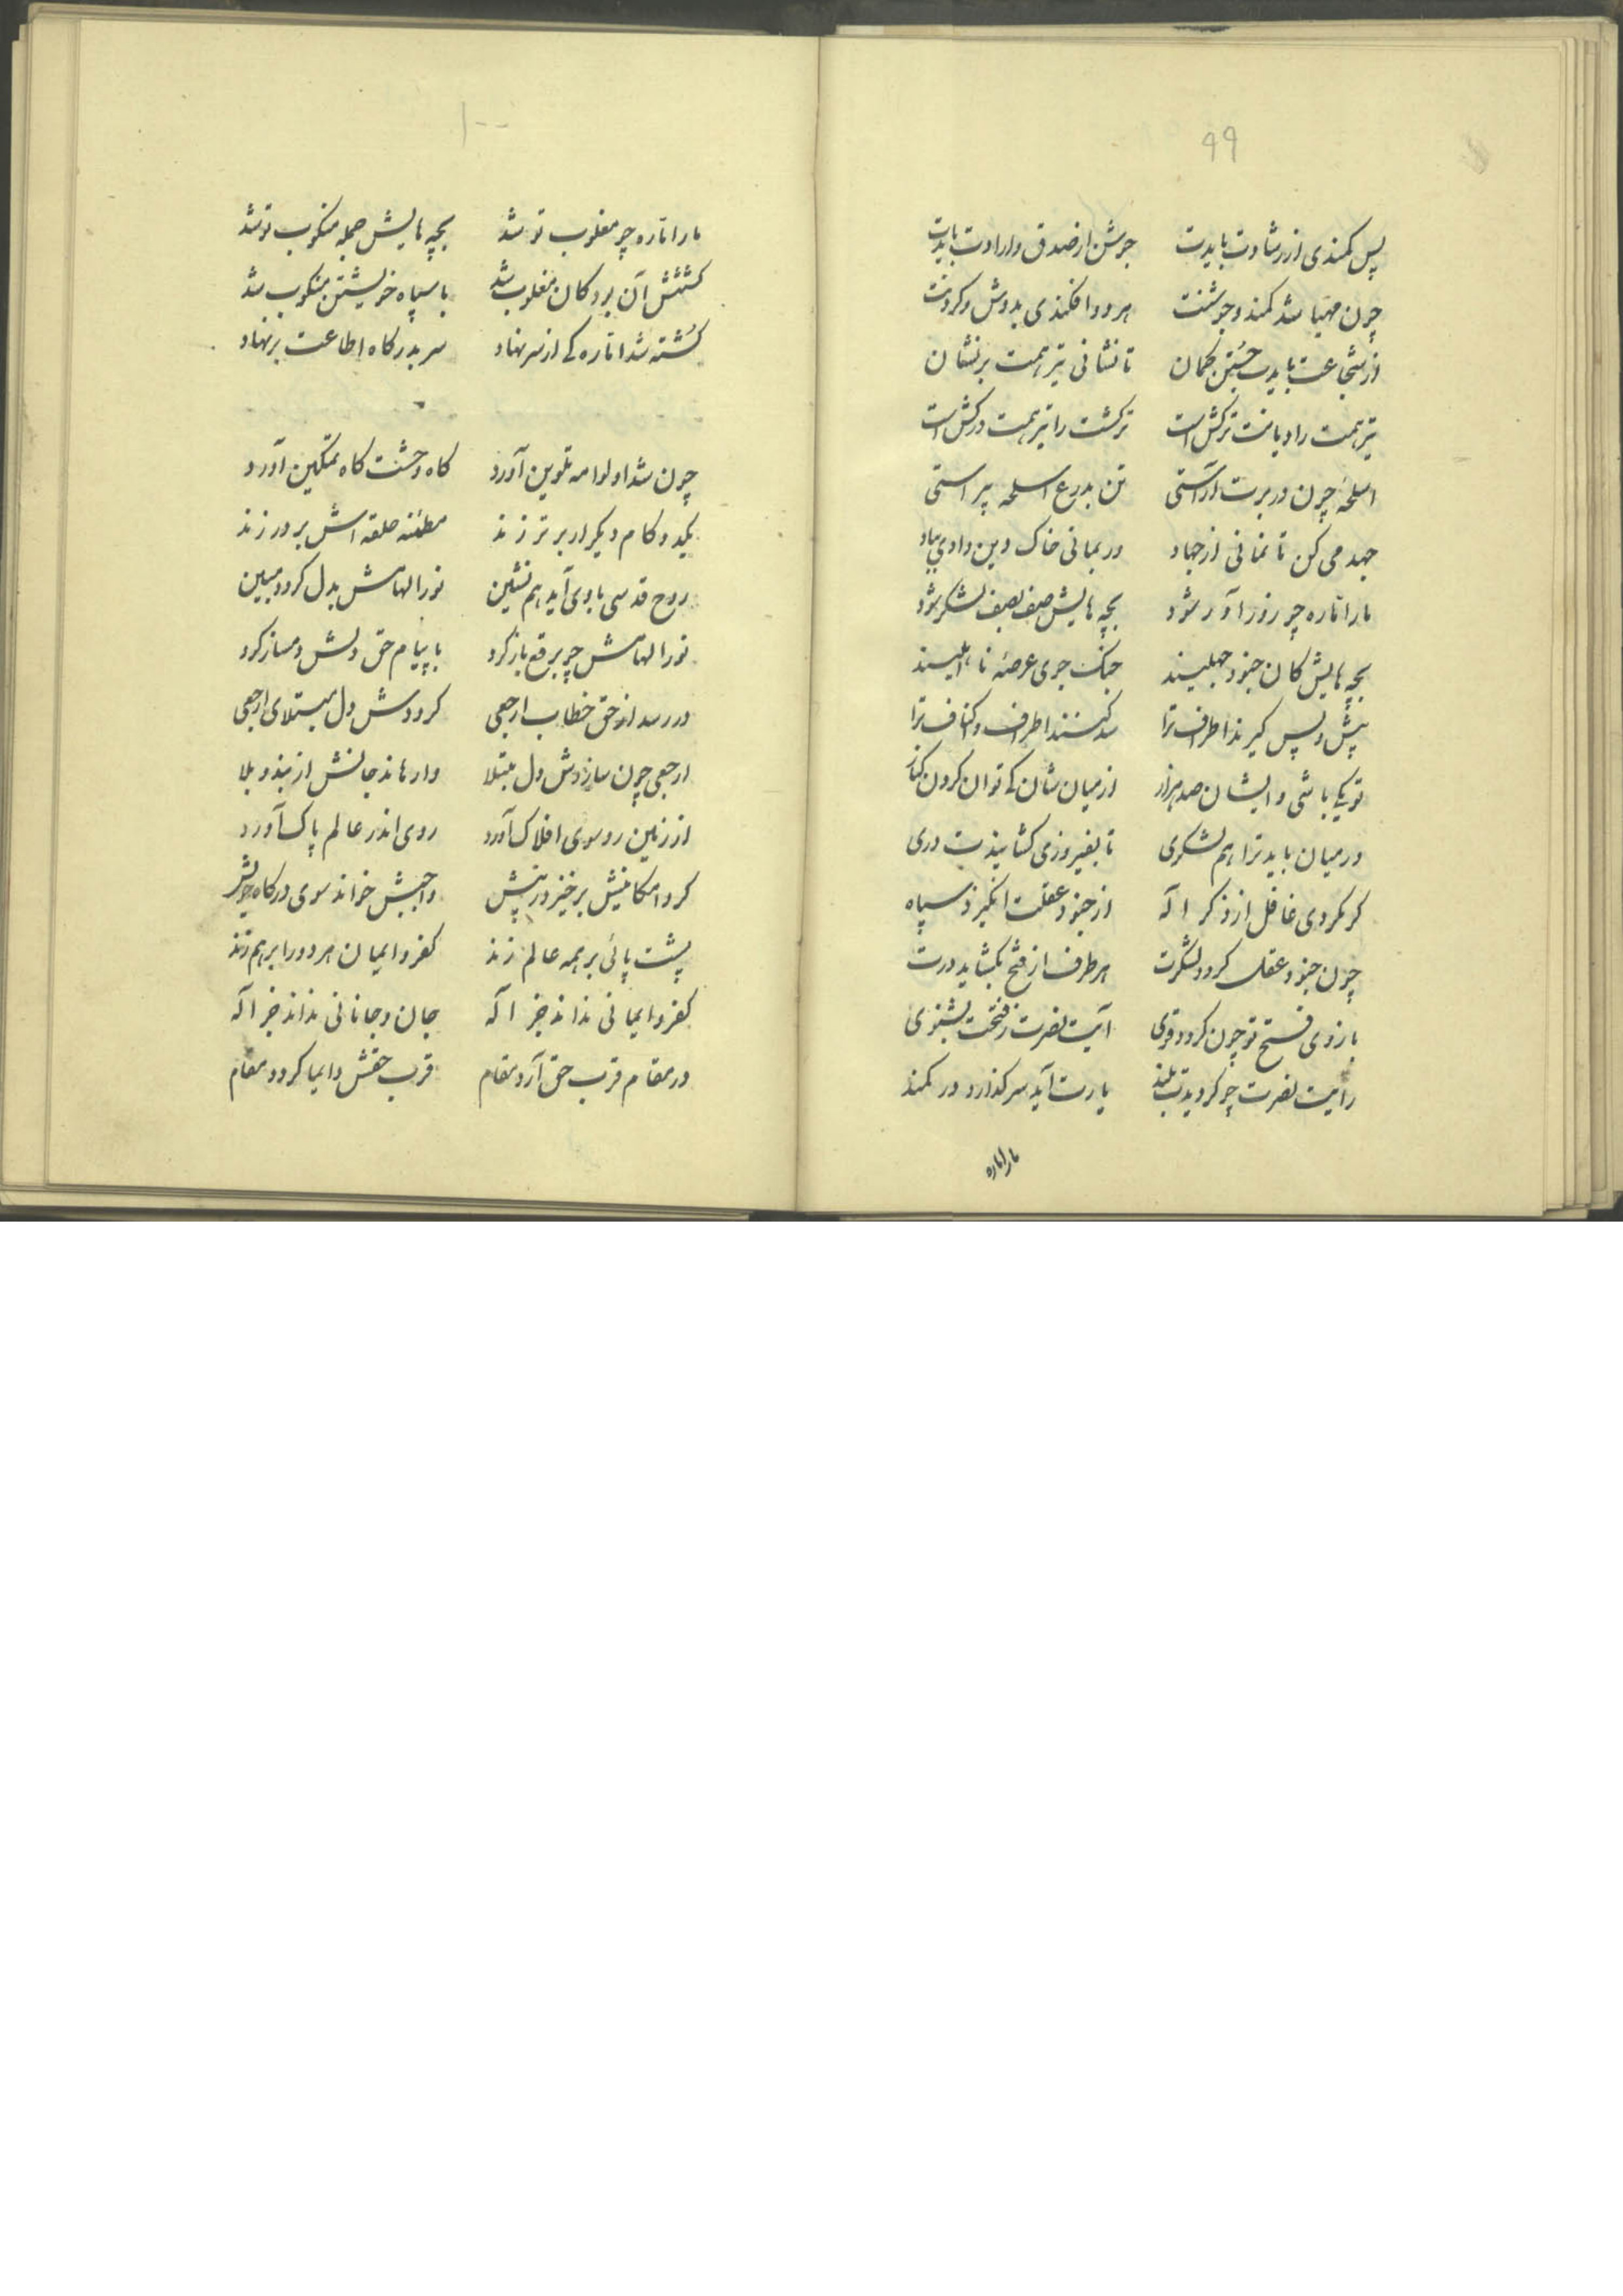 ۹۹
پس کمندی از رشادت بایدت جوشن از صدق و ارادت بایدت
چون مهیا شد کمند و جوشنت هر دو افکندی بدوش و گردنت
از شجاعت بایدت جستن کمان تا نشانی تیر همت بر نشان
تیر همت را دیانت ترکش است ترکشت را تیر همت درکش است
اسلحه چون در برت آراستی تن بدرع اسلحه پیراستی
جهد می کن تا نمانی از جهاد ور بمانی خاک دین دادی بباد
مار اماره چو زورآور شود بچه هایش صف بصف لشکر شود
بچه هایش کان جنود جهلیند جنک جوی عرصه نا اهلیند
پیش و پس گیرند اطراف ترا سد کنند اطراف و اکناف ترا
تو یکی باشی و ایشان صد هزار از میان شان کی توان کردن کنار
در میان باید ترا هم لشکری تا بفیروزی کشایندت دری
گر نگردی غافل از ذکر اله از جنود عقلت انگیزد سپاه
چون جنود عقل گردد لشکرت هر طرف از فتح بگشاید درت
بازوی فتح تو چون گردد قوی آیت نصرت ز فتحت بشنوی
رایت نصرت چو گردیدت بلند یارت آید سر گذارد در کمند
مار اماره
۱۰۰
مار اماره چو مغلوب تو شد بچه هایش جمله منکوب تو شد
کشتنش آن بود کان مغلوب شد با سپاه خویشتن منکوب شد
کشته شد اماره کی از سر نهاد سر بدرگاه اطاعت بر نهاد
چون شد او لوامه تلوین آورد گاه وحشت گاه تمکین آورد
یکدو گام دیگر ار برتر زند مطمئنه حلقه اش بر در زند
روح قدسی با وی آید هم نشین نور الهامش بدل گردد مبین
نور الهامش چو برقع باز کرد با پیام حق دلش دمساز کرد
در رسد از حق خطاب ارجعی گرددش دل مبتلای ارجعی
ارجعی چون سازدش دل مبتلا وارهاند جانش از بند و بلا
از زمین رو سوی افلاک آورد روی اندر عالم پاک آورد
گرد امکانیش برخیزد ز پیش واجبش خواند سوی درگاه خویش
پشت پائی بر همه عالم زند کفر و ایمان هر دو را بر هم زند
کفر و ایمانی نداند جز اله جان و جانانی نداند جز اله
در مقام قرب حق آرد مقام قرب حقش دایما گردد مقام